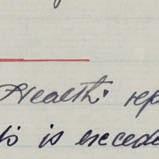 Health: rep
is exceed